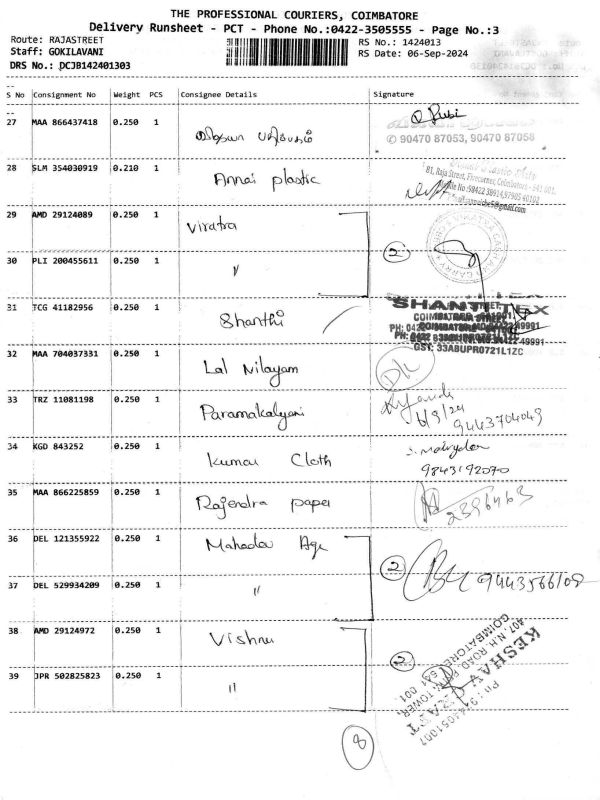 THE PROFESSIONAL COURIERS, COIMBATORE
Delivery Runsheet - PCT - Phone No.:0422-3505555 - Page No.:3
Route: RAJASTREET
Staff: GOKILAVANI
DRS No.: DCJB142401303
RS No.: 1424013
RS Date: 06-Sep-2024
S No Consignment No Weight PCS Consignee Details Signature
27 MAA 866437418 0.250 1
✆ 90470 87053, 90470 87058
28 SLM 354030919 0.210 1 Annai plastic
81, Raja Street,
29 AMD 29124089 0.250 1 Viratra
②
30 PLI 200455611 0.250 1 "
31 TCG 41182956 0.250 1 Shanthi
SHANTHI TEX
GST: 33ABUPR0721L1ZC
32 MAA 704037331 0.250 1 Lal Nilayam
33 TRZ 11081198 0.250 1 Paramakalyani
6/9/24
9443704049
34 KGD 843252 0.250 1 Kumar Cloth
9843192070
35 MAA 866225859 0.250 1 Rajendra paper
2396463
36 DEL 121355922 0.250 1 Mahadev Age
②
37 DEL 529934209 0.250 1 "
38 AMD 29124972 0.250 1 Vishnu
KESHAV KRAFT
407, N.H. ROAD
COIMBATORE - 641 001.
②
39 JPR 502825823 0.250 1 "
⑧